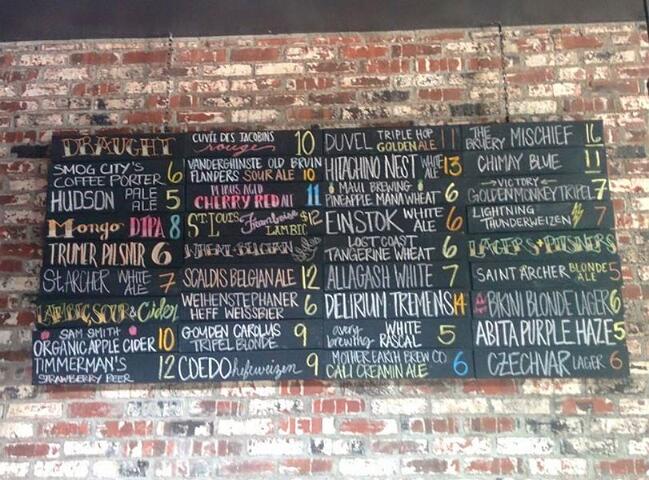 DRAUGHT
SMOG CITY'S
COFFEE PORTER 6
HUDSON ALE
ALE 5
Mongo DIPA 8
TRUMER PILSNER 6
St. ARCHER WHITE
ALE 7
LAMBIC, SOUR & Cider
SAM SMITH
ORGANIC APPLE CIDER 10
TIMMERMAN'S
STRAWBERRY BEER 12
CUVÉE DES JACOBINS
rouge 10
VANDERGHINSTE OLD BRUIN
FLANDERS SOUR ALE 10
AGED
CHERRY RED ALE 11
ST. LOUIS Framboise $12
LAMBIC
WHEAT + BELGIAN
SCALDIS BELGIAN ALE 12
WEIHENSTEPHANER
HEFF WEISSBIER 6
GOUDEN CAROLUS
TRIPEL BLONDE 9
COEDO hefeweizen 9
DUVEL TRIPLE HOP
GOLDEN ALE 11
HITACHINO NEST WHITE
ALE 13
MAUI BREWING
PINEAPPLE MANA WHEAT 6
EINSTOK WHITE
ALE 6
LOST COAST
TANGERINE WHEAT 6
ALLAGASH WHITE 7
DELIRIUM TREMENS 14
avery
brewing WHITE
RASCAL 5
MOTHER EARTH BREW CO
CALI CREAMIN ALE 6
THE
BRUERY MISCHIEF 16
CHIMAY BLUE 11
VICTORY
GOLDEN MONKEY TRIPEL 7
LIGHTNING
THUNDERWEIZEN 7
LAGERS + PILSNERS
SAINT ARCHER BLONDE
ALE 5
BIKINI BLONDE LAGER 6
ABITA PURPLE HAZE 5
CZECHVAR LAGER 6